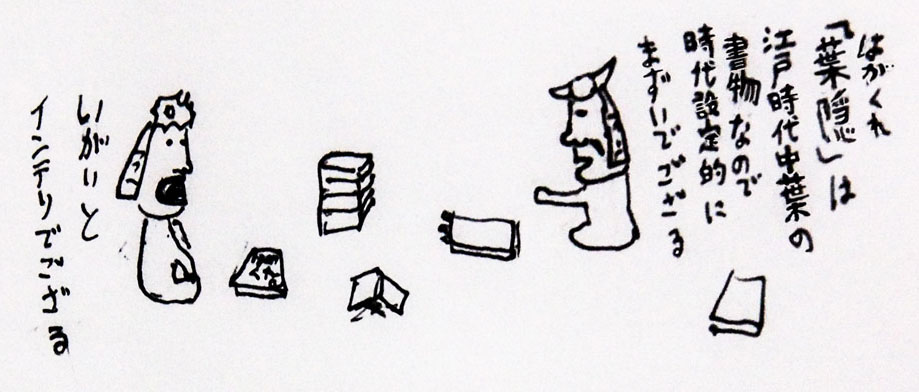 はがくれ
「葉隠」は
江戸時代中葉の
書物なので
時代設定的に
まずいでござる
いがいと
インテリでござる